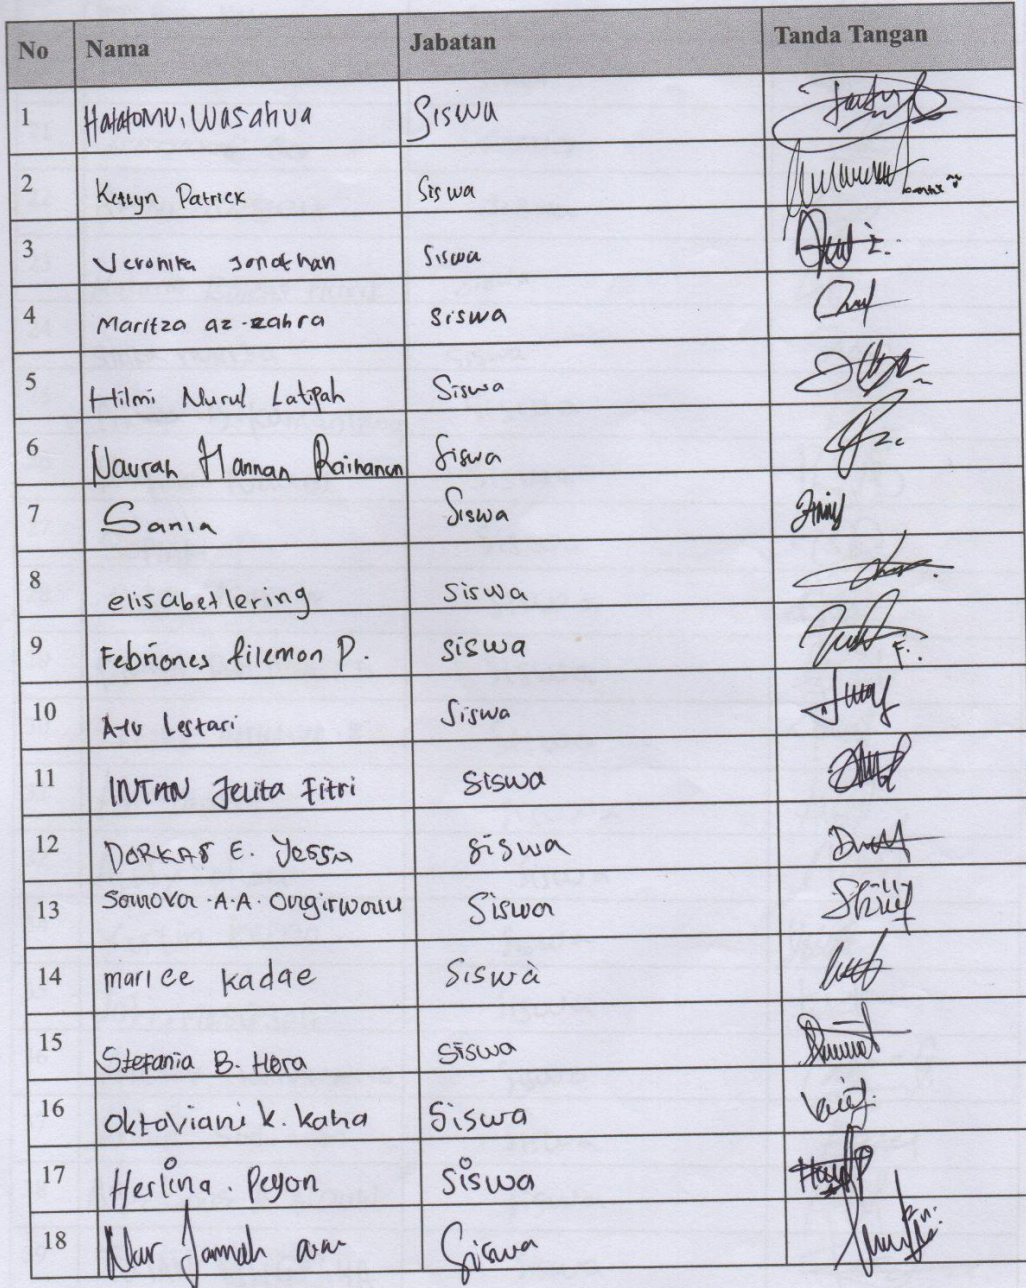 No Nama Jabatan Tanda Tangan
1 Hatatomu. Wasahua Siswa
2 Ketlyn Patrick Siswa
3 Veronika Jonathan Siswa
4 Maritza az-zahra siswa
5 Hilmi Nurul Latipah Siswa
6 Naurah Hannan Raihanun Siswa
7 Sania Siswa
8 elisabetlering siswa
9 Febriones filemon P. siswa
10 Ayu Lestari Siswa
11 INTAN Jelita Fitri siswa
12 DORKAS E. Yessa siswa
13 A.A. Siswa
14 marice kadae Siswa
15 Stefania B. Hera siswa
16 Oktoviani K. Kaha Siswa
17 Herlina. Peyon Siswa
18 Nur Jannah Siswa